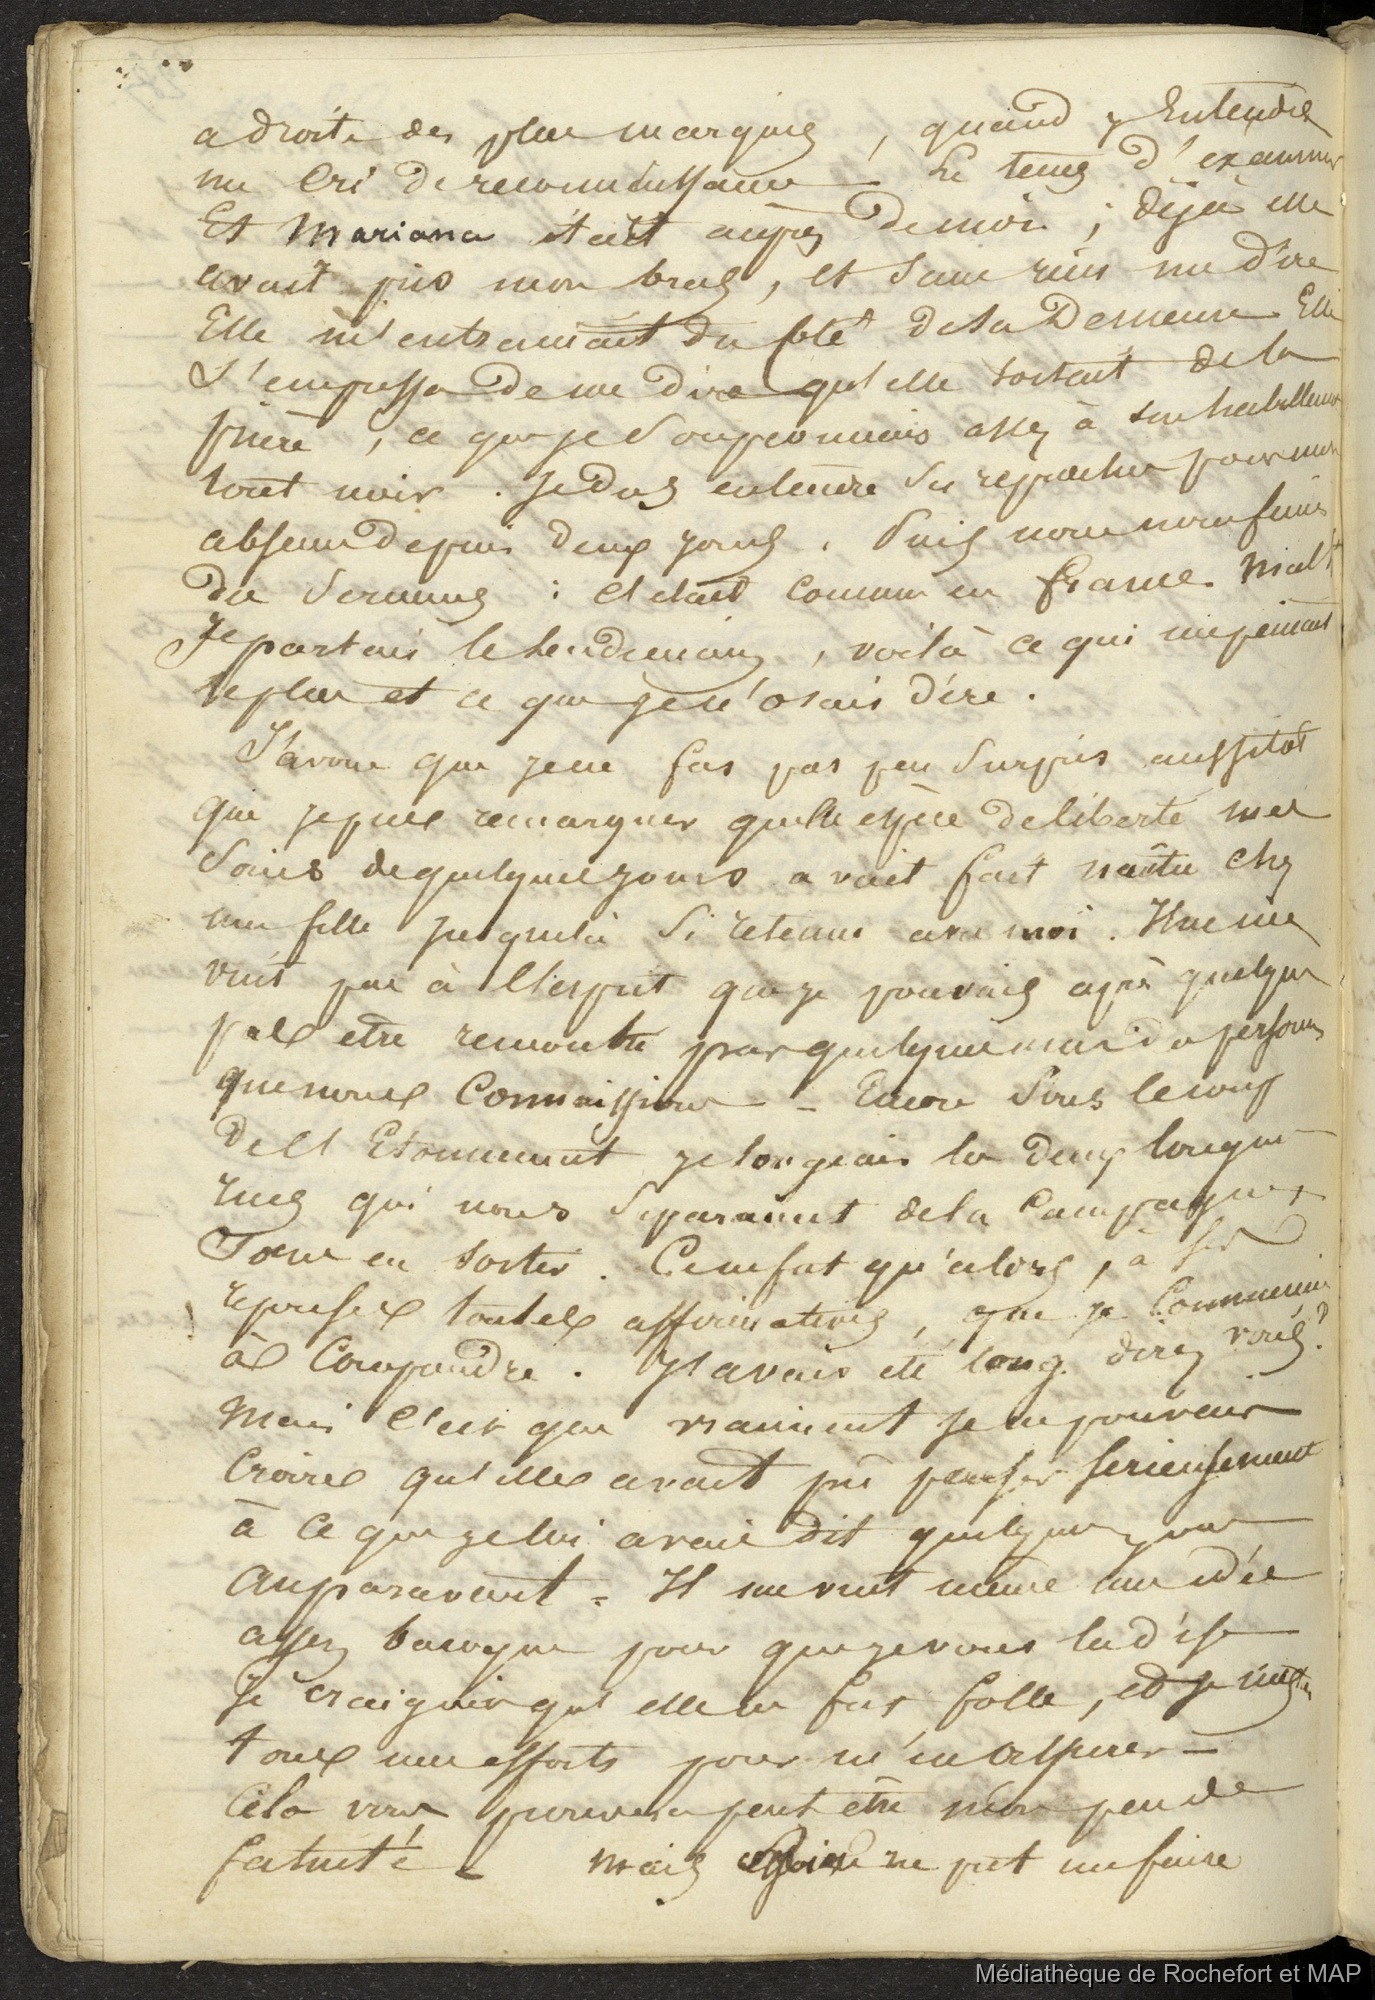 a droite des plus marquis, quand j'Entendis
un Cri de reconnaissance - Le tems d'examiner
Et Mariana était auprès de moi ; déjà elle
avait pris mon bras, et sans rien me dire
Elle m'entrainait du coté de sa Demeure Elle
S'empressa de me dire qu'elle sortait de la
prière, ce que je soupconnais assez à son habillement
tout noir. Je dus entendre des reproches pour mon
absence depuis deux jours. Puis nous nous fimes
des Sermens : C'etait comme en France. Mais
Je partais le lendemain, voilà ce qui me peinait
le plus et ce que je n'osais dire.
J'avoue que je ne fus pas peu Surpris aussitot
que je pus remarquer quelle espèce de liberté mes
Soins de quelques jours avait fait naître chez
une fille jusque là si retenue avec moi. Il ne me
vint pas à l'esprit que je pouvais après quelques
pas etre remontré par quelqu'une des personnes
que nous Connaissions - Encore Sous le coup
de l'Etonnement je longeais les deux longues
rues qui nous Separaient de la Campagne,
Pour en sortir. Ce ne fut qu'alors, à ses
reponses toutes affirmatives, que je Commencai
à Comprendre. J'avais été long. direz vous?
Mais C'est que vraiment je ne pouvais
Croire qu'elle avait pu penser serieusement
à Ce que je lui avais dit quelques
Auparavant - Il me vint même une idée
assez baroque pour que je vous la dise
Je craignis qu'elle ne fut folle, et je mis
tous mes efforts pour m'en assurer -
Cela vous prouvera peut être mon peu de
fatuité - Mais ne put me faire
Médiathèque de Rochefort et MAP